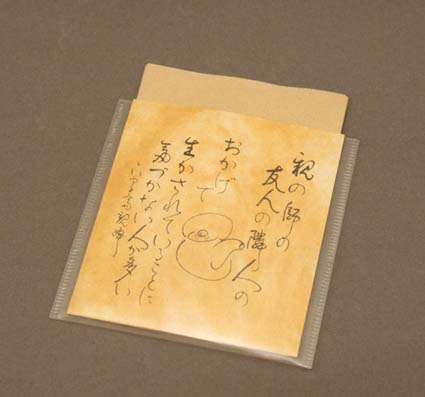 親の師の
友人の隣人の
おかげで
生かされていることに
気づかない人が多い